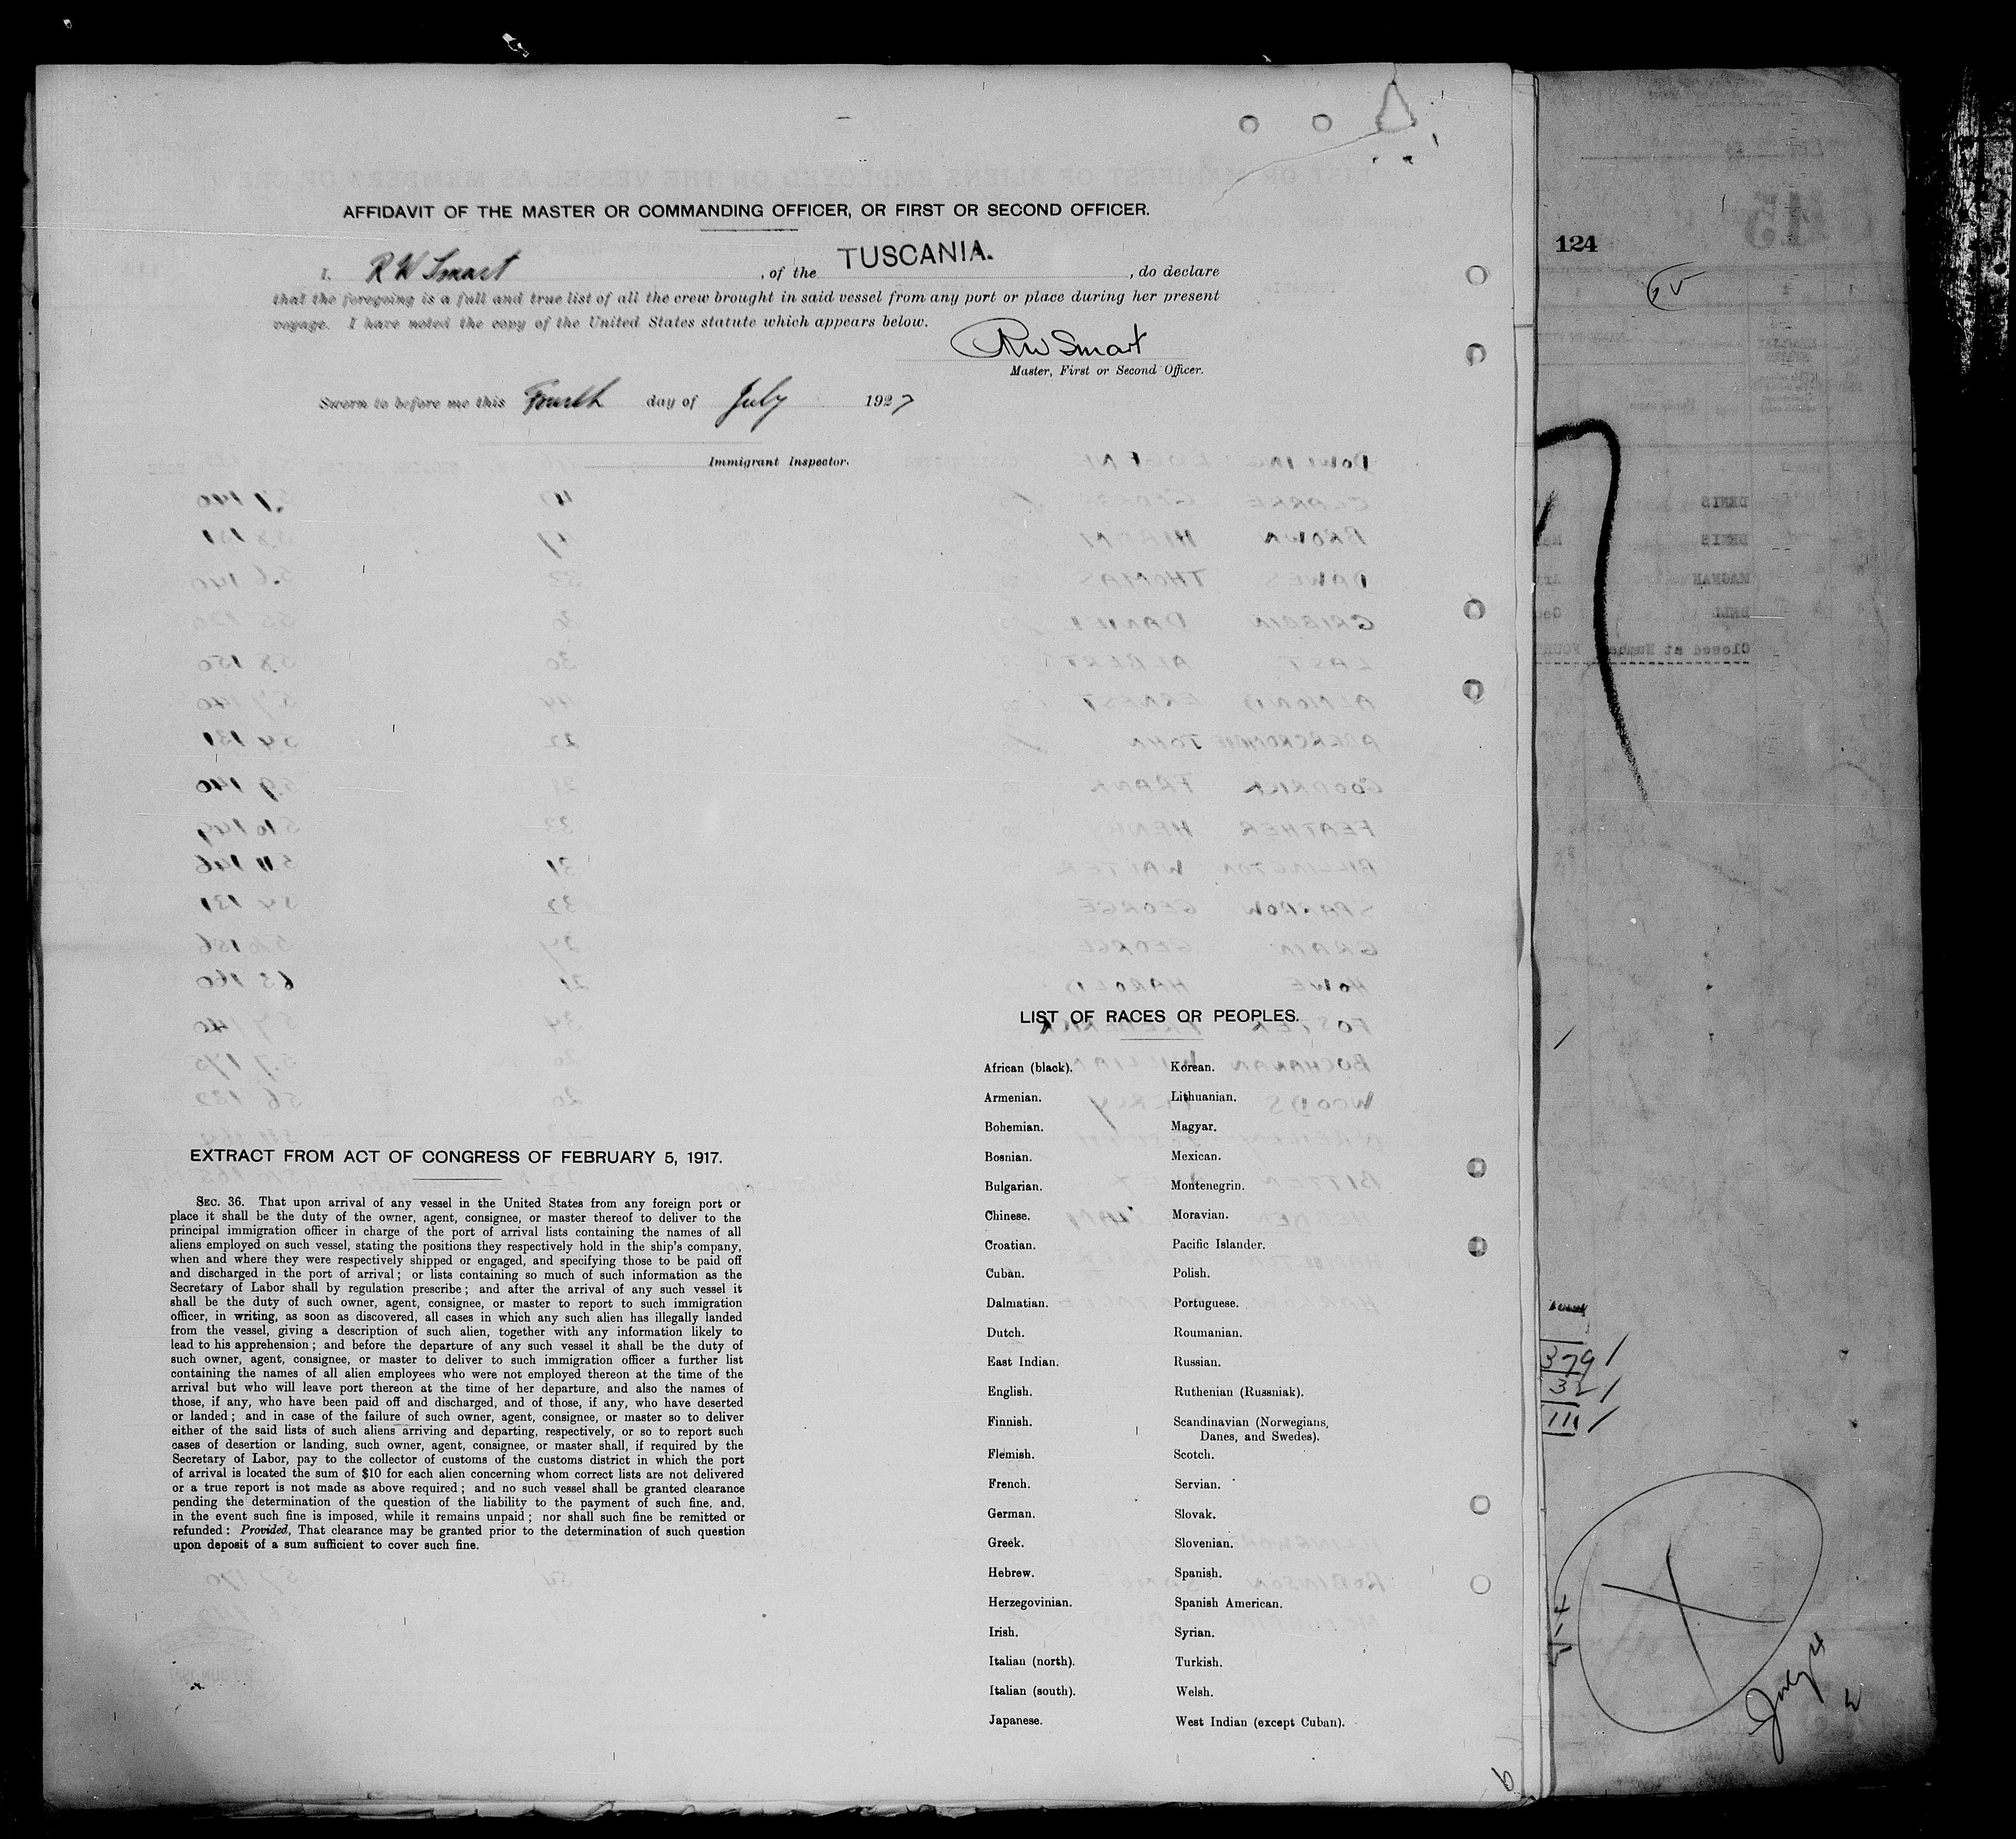 AFFIDAVIT OF THE MASTER OR COMMANDING OFFICER, OR FIRST OR SECOND OFFICER.
I, R W Smart, of the TUSCANIA., do declare
that the foregoing is a full and true list of all the crew brought in said vessel from any port or place during her present
voyage. I have noted the copy of the United States statute which appears below.
RW Smart
Master, First or Second Officer.
Sworn to before me this Fourth day of July 1927
Immigrant Inspector.
EXTRACT FROM ACT OF CONGRESS OF FEBRUARY 5, 1917.
SEC. 36. That upon arrival of any vessel in the United States from any foreign port or
place it shall be the duty of the owner, agent, consignee, or master thereof to deliver to the
principal immigration officer in charge of the port of arrival lists containing the names of all
aliens employed on such vessel, stating the positions they respectively hold in the ship's company,
when and where they were respectively shipped or engaged, and specifying those to be paid off
and discharged in the port of arrival; or lists containing so much of such information as the
Secretary of Labor shall by regulation prescribe; and after the arrival of any such vessel it
shall be the duty of such owner, agent, consignee, or master to report to such immigration
officer, in writing, as soon as discovered, all cases in which any such alien has illegally landed
from the vessel, giving a description of such alien, together with any information likely to
lead to his apprehension; and before the departure of any such vessel it shall be the duty of
such owner, agent, consignee, or master to deliver to such immigration officer a further list
containing the names of all alien employees who were not employed thereon at the time of the
arrival but who will leave port thereon at the time of her departure, and also the names of
those, if any, who have been paid off and discharged, and of those, if any, who have deserted
or landed; and in case of the failure of such owner, agent, consignee, or master so to deliver
either of the said lists of such aliens arriving and departing, respectively, or so to report such
cases of desertion or landing, such owner, agent, consignee, or master shall, if required by the
Secretary of Labor, pay to the collector of customs of the customs district in which the port
of arrival is located the sum of $10 for each alien concerning whom correct lists are not delivered
or a true report is not made as above required; and no such vessel shall be granted clearance
pending the determination of the question of the liability to the payment of such fine, and,
in the event such fine is imposed, while it remains unpaid; nor shall such fine be remitted or
refunded: Provided, That clearance may be granted prior to the determination of such question
upon deposit of a sum sufficient to cover such fine.
LIST OF RACES OR PEOPLES.
African (black). Korean.
Armenian. Lithuanian.
Bohemian. Magyar.
Bosnian. Mexican.
Bulgarian. Montenegrin.
Chinese. Moravian.
Croatian. Pacific Islander.
Cuban. Polish.
Dalmatian. Portuguese.
Dutch. Roumanian.
East Indian. Russian.
English. Ruthenian (Russniak).
Finnish. Scandinavian (Norwegians,
Danes, and Swedes).
Flemish. Scotch.
French. Servian.
German. Slovak.
Greek. Slovenian.
Hebrew. Spanish.
Herzegovinian. Spanish American.
Irish. Syrian.
Italian (north). Turkish.
Italian (south). Welsh.
Japanese. West Indian (except Cuban).
124
379
32
111
July 4